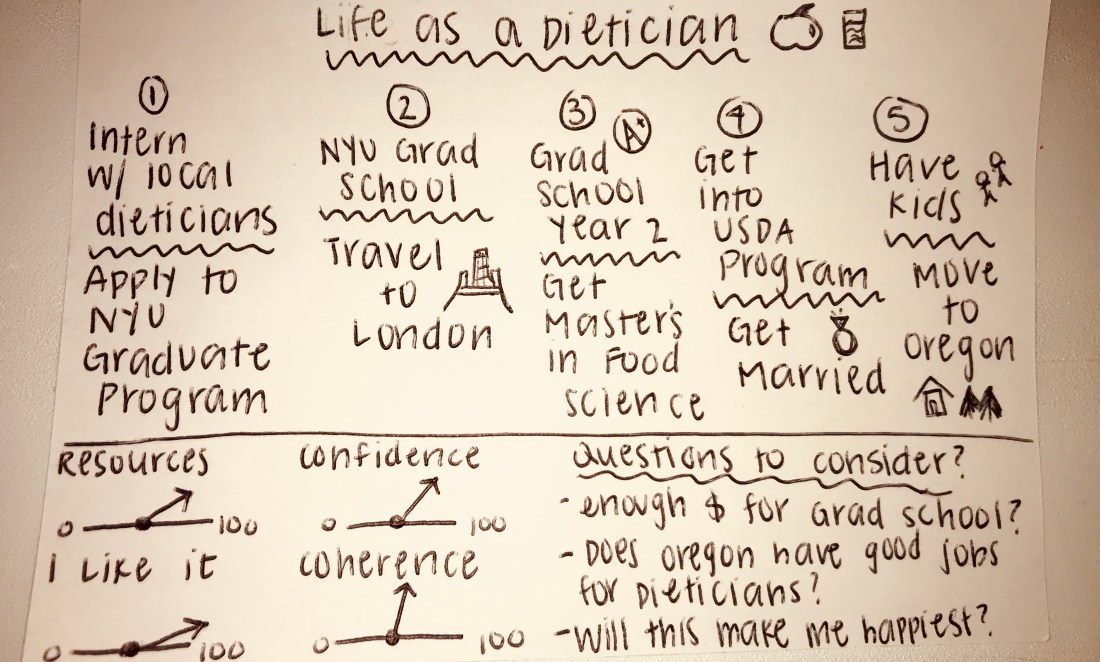 Life as a Dietician
1
Intern
w/ local
dieticians
Apply to
NYU
Graduate
Program
2
NYU Grad
School
Travel
to
London
3
A+
Grad
School
Year 2
Get
Master's
in Food
Science
4
Get
into
USDA
Program
Get
Married
5
Have
Kids
Move
to
Oregon
Resources
0 100
Confidence
0 100
I Like it
0 100
Coherence
0 100
Questions to consider?
- enough $ for Grad School?
- Does Oregon have good jobs
for Dieticians?
- Will this make me happiest?